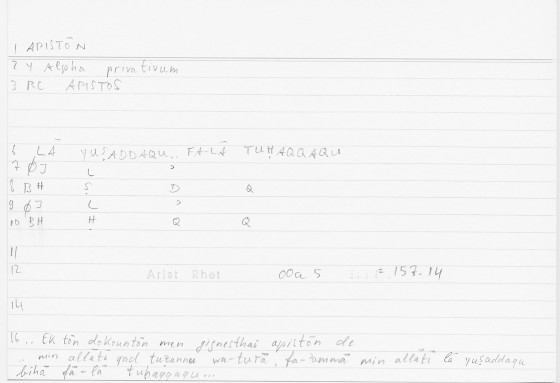 1 APISTŌN
2 Y Alpha privativum
3 RC APISTOS
6 LĀ YUṢADDAQU.. FA-LĀ TUḤAQQAQU
7 ØJ L ʾ
8 BH Ṣ D Q
9 ØJ L ʾ
10 BH Ḥ Q Q
11
12 Arist Rhet 00a 5 = 157.14
14
16 .. Ek tōn dokountōn men gignesthai apistōn de
.. min allātī qad tuẓannu wa-turā, fa-ʾammā min allātī lā yuṣaddaqu
bihā fa-lā tuḥaqqaqu...